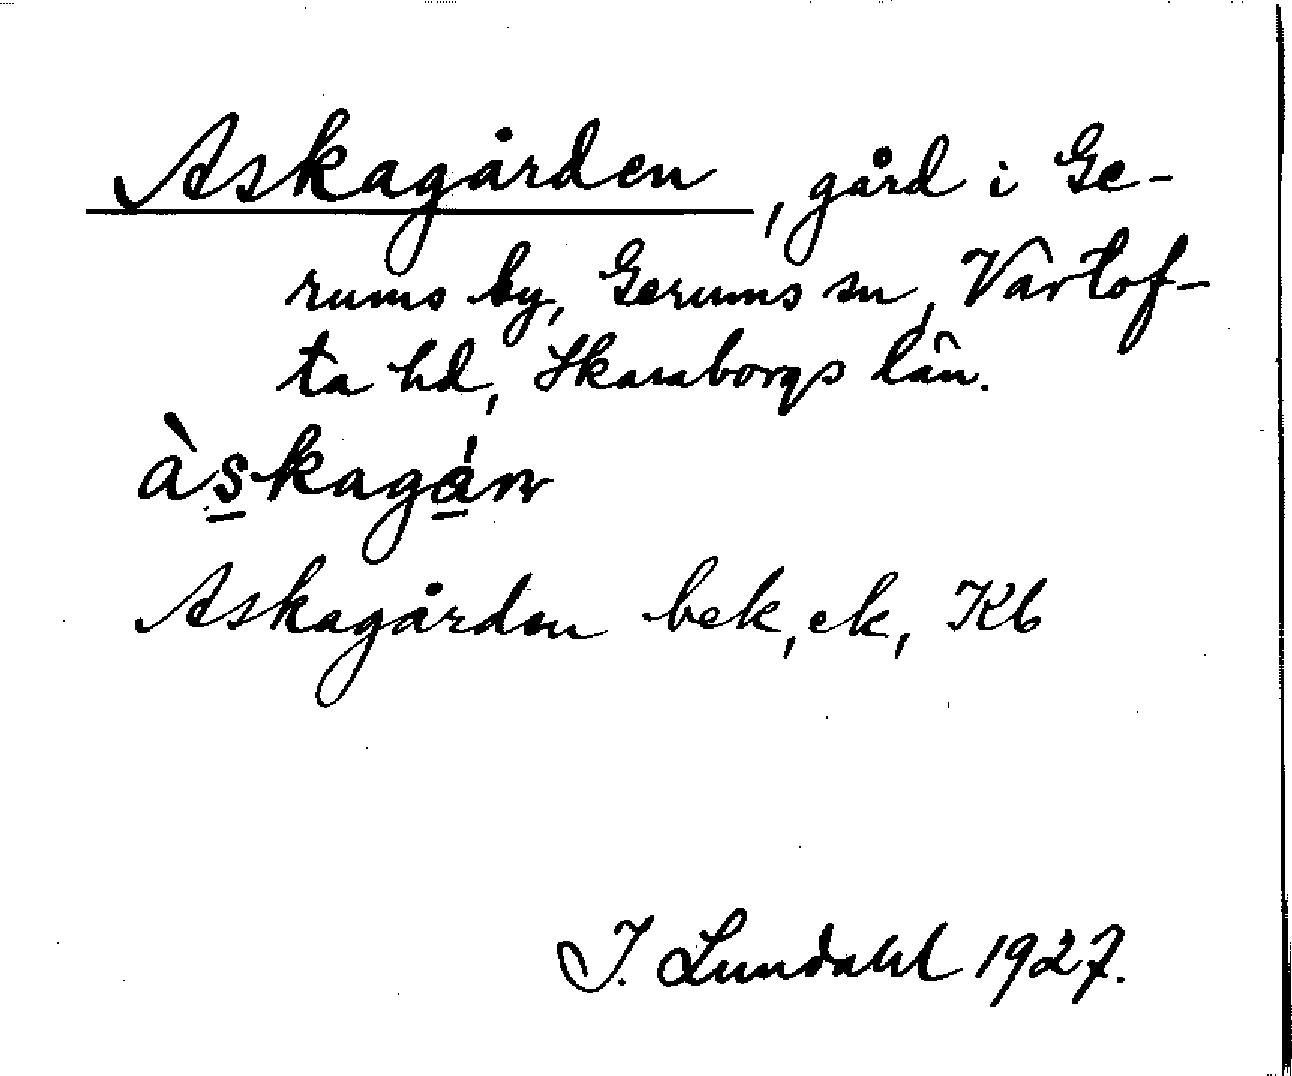 Askagården, gård i Ge-
rums by, Gerums sn, Vartof-
ta hd, Skaraborgs län.
àskagán
Askagården bek, ek, Kb
I. Lundahl 1927.